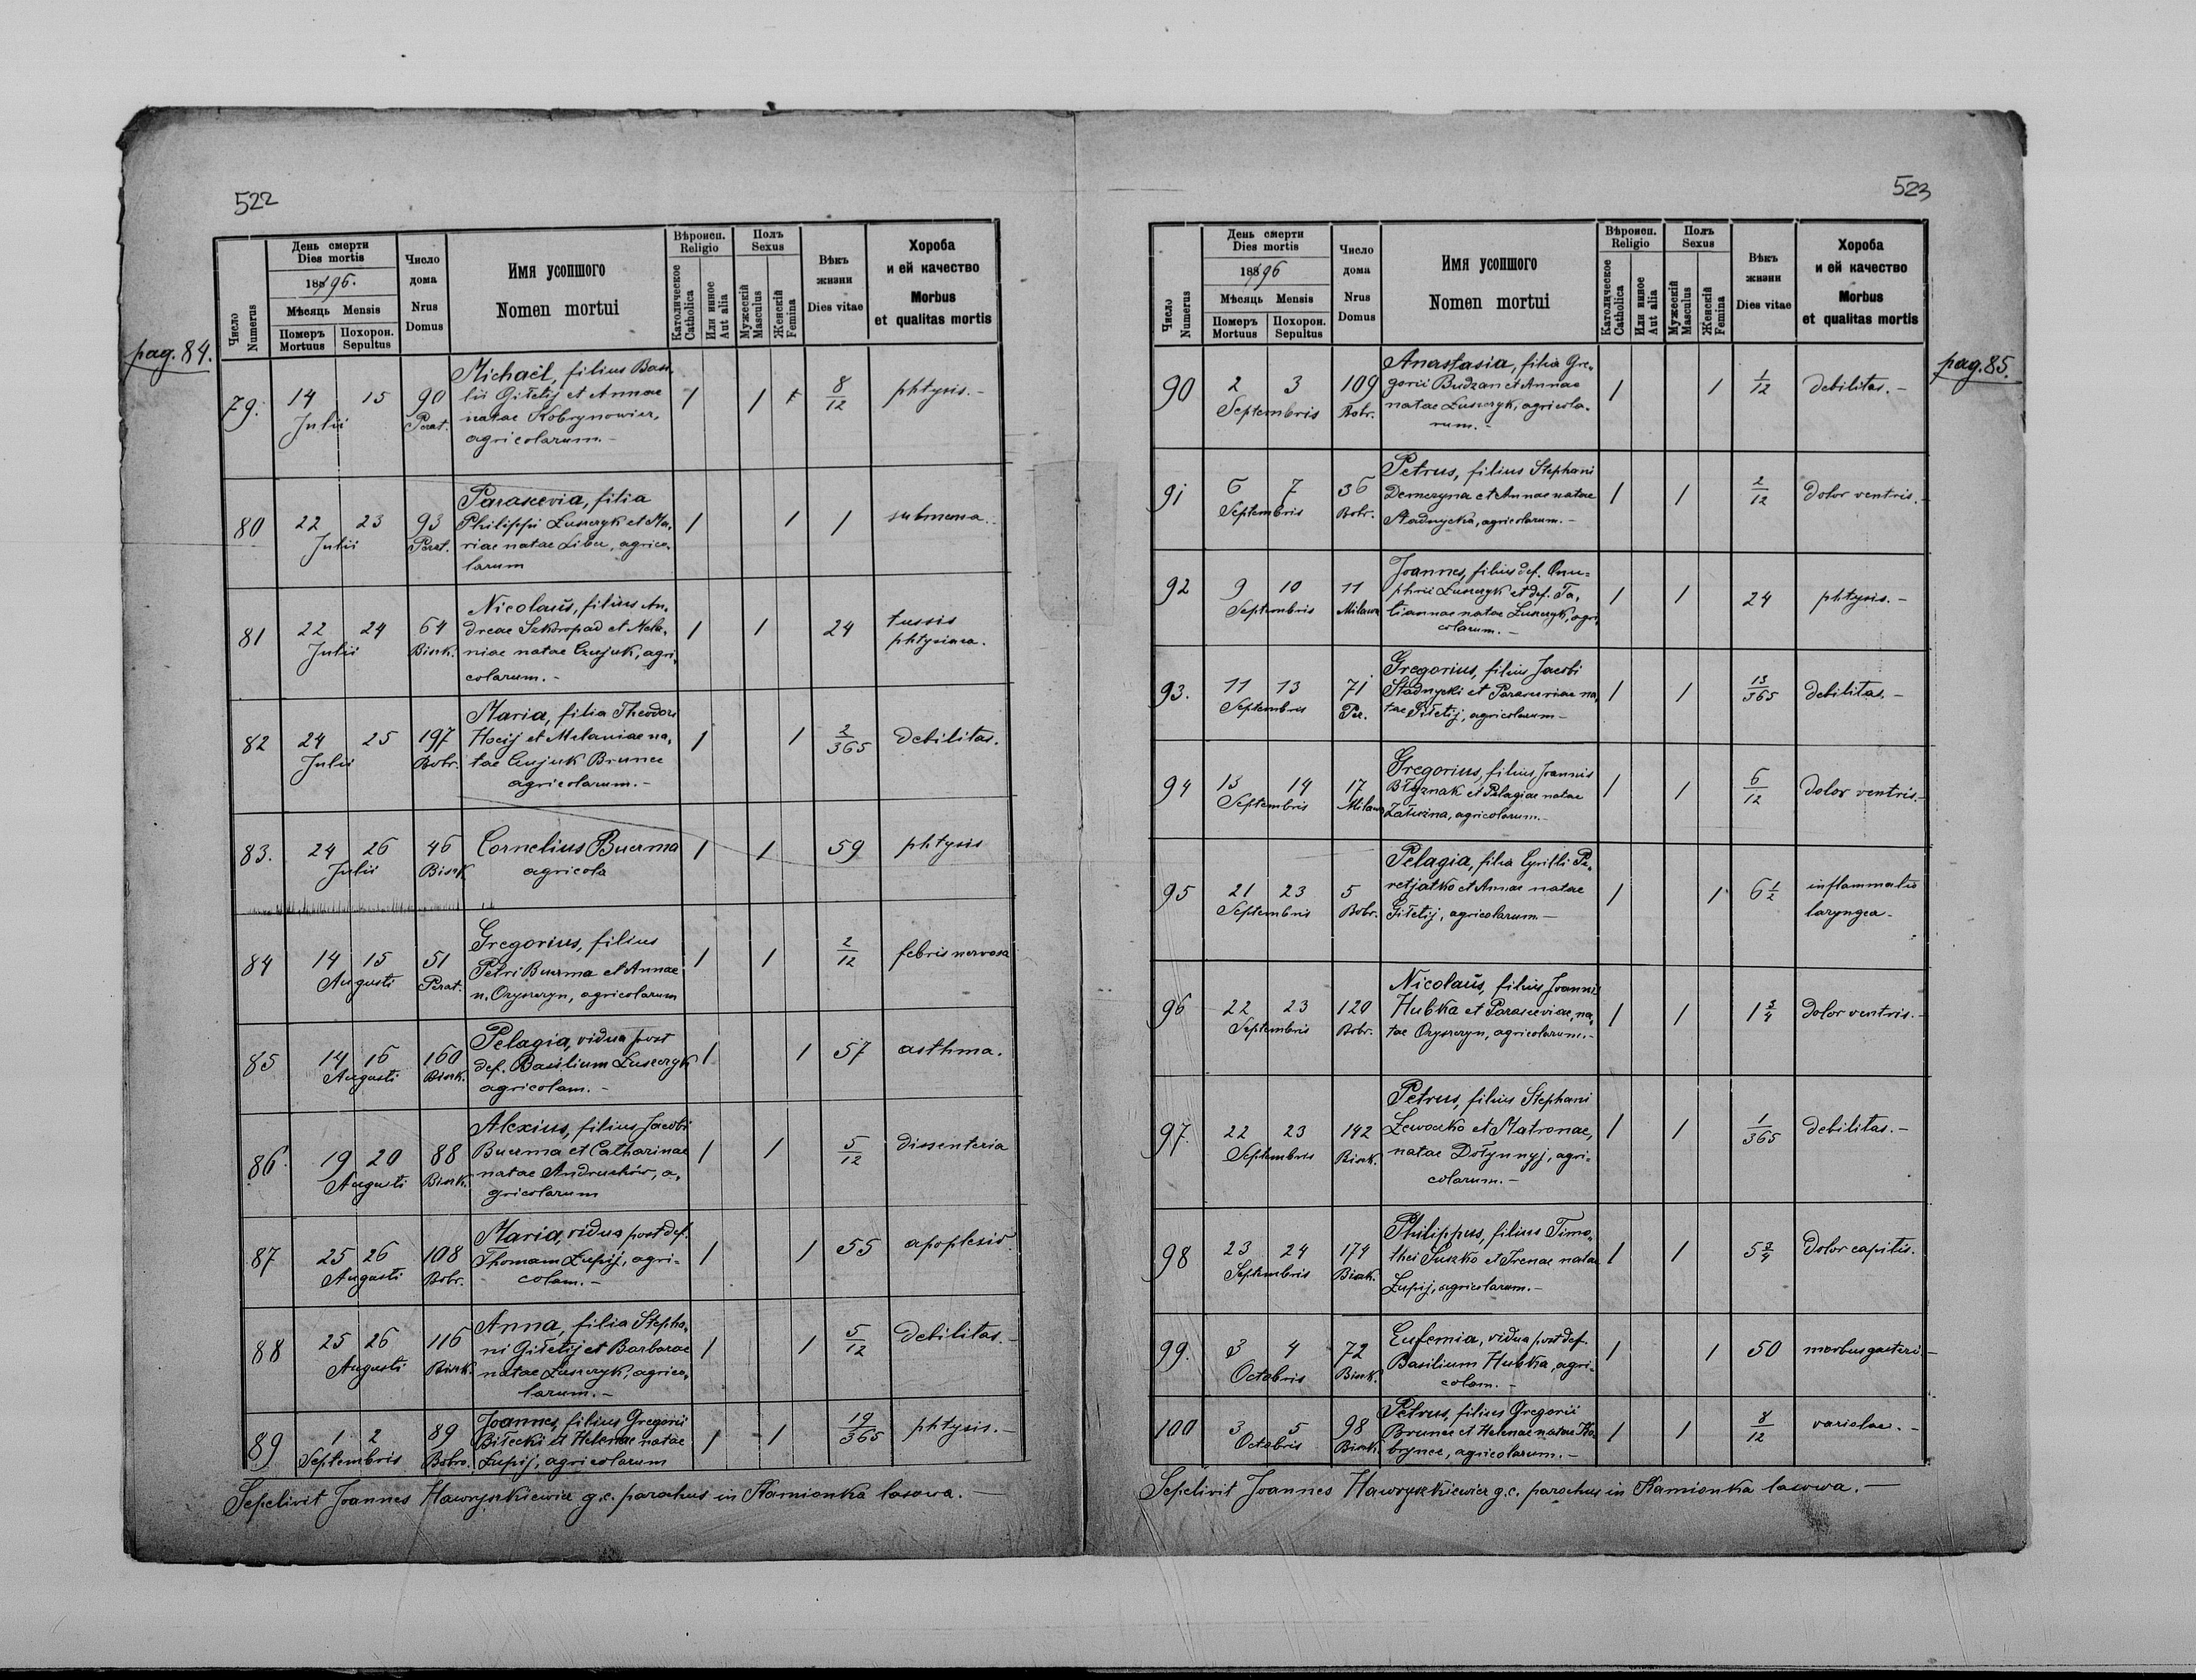 522
pag. 84.
Число Numerus
День смерти Dies mortis
1896.
Мѣсяць Mensis
Померъ Mortuus
Похорон. Sepultus
Число дома Nrus Domus
Имя усопшого
Nomen mortui
Вѣроисп. Religio
Католическое Catholica
Или инное Aut alia
Полъ Sexus
Мужескій Masculus
Женскій Femina
Вѣкъ жизни Dies vitae
Хороба и ей качество
Morbus et qualitas mortis
79. 14 15 Julii 90 Perat. Michaël, filius Basi,
lii Giłetij et Annae
natae Kobrynowicz,
agricolarum.- 1 1 8/12 phtysis.-
80 22 23 Julii 93 Perat. Parascevia, filia
Philippi Luszczyk et Ma,
riae natae Liber, agrico,
larum 1 1 1
81 22 24 Julii 64 Bisk. Nicolaŭs, filius An,
dreae Szkoropad et Mela,
niae natae Czujuk, agri,
colarum.- 1 1 24 tussis
phtysica.
82 24 25 Julii 197 Bobr. Maria, filia Theodori
Hocij et Melaniae na,
tae Czujuk Brunec
agricolarum.- 1 1 2/365 debilitas.
83. 24 26 Julii 46 Bisk. Cornelius Buczma
agricola 1 1 59 phtysis
84 14 15 Augusti 51 Perat. Gregorius, filius
Petri Buczma et Annae
n. Oryszczyn, agricolarum 1 1 2/12 febris nervosa
85 14 16 Augusti 160 Bisk. Pelagia, vidua post
def. Basilium Luszczyk
agricolam.- 1 1 57 asthma.
86. 19 20 Augusti 88 Bisk. Alexius, filius Jacobi
Buczma et Catharinae
natae Andruchów, a,
gricolarum 1 1 5/12 dissenteria
87 25 26 Augusti 108 Bobr. Maria, vidua post def.
Thomam Łupij, agri-
colam.- 1 1 55 apoplexio.
88 25 26 Augusti 116 Bisk. Anna, filia Stepha,
ni Giłetij et Barbarae
natae Luszczyk, agrico,
larum.- 1 1 5/12 debilitas.-
89 1 2 Septembris 89 Bobro. Joannes, filius Gregorii
Biłecki et Helenae natae
Łupij, agricolarum 1 1 19/365 phtysis.-
Sepelivit Joannes Hawryszkiewicz g.c. parochus in Kamionka lasowa.-
523
pag. 85.
Число Numerus
День смерти Dies mortis
1896
Мѣсяць Mensis
Померъ Mortuus
Похорон. Sepultus
Число дома Nrus Domus
Имя усопшого
Nomen mortui
Вѣроисп. Religio
Католическое Catholica
Или инное Aut alia
Полъ Sexus
Мужескій Masculus
Женскій Femina
Вѣкъ жизни Dies vitae
Хороба и ей качество
Morbus et qualitas mortis
90 2 3 Septembris 109 Bobr. Anastasia, filia Gre,
gorii Budzan et Annae
natae Luszczyk, agricola,
rum.- 1 1 1/12 debilitas.-
91 6 7 Septembris 36 Bobr. Petrus, filius Stephani
Demczyna et Annae natae
Stadnycka, agricolarum.- 1 1 2/12 dolor ventris.-
92 9 10 Septembris 11 Milawa Joannes, filius def. Onu=
phrii Luszczyk et def. Ta,
tiannae natae Luszczyk, agri,
colarum.- 1 1 24 phtysis.-
93. 11 13 Septembris 71 Per. Gregorius, filius Jacobi
Stadnycki et Parasceviae na,
tae Giłetij, agricolarum- 1 1 13/365 debilitas.-
94 13 14 Septembris 17 Milawa Gregorius, filius Joannis
Błyznak et Pelagiae natae
agricolarum.- 1 1 6/12 dolor ventris.-
95 21 23 Septembris 5 Bobr. Pelagia, filia Cyrilli Pe,
retjatko et Annae natae
Giłetij, agricolarum.- 1 1 6 1/2 inflammatio
laryngea.
96 22 23 Septembris 120 Bobr. Nicolaŭs, filius Joannis
Hubka et Parasceviae, na,
tae Oryszczyn, agricolarum.- 1 1 1 3/4 dolor ventris.-
97. 22 23 Septembris 142 Bisk. Petrus, filius Stephani
Lewoczko et Matronae,
natae Dołynnyj, agri-
colarum.- 1 1 1/365 debilitas.-
98 23 24 Septembris 174 Bisk. Philippus, filius Timo,
thei Suszko et Irenae natae
Łupij, agricolarum.- 1 1 5 3/4 dolor capitis.
99. 3 4 Octobris 72 Bisk. Eufemia, vidua post def.
Basilium Hubka, agri-
colam.- 1 1 50 morbus gasteri.-
100 3 5 Octobris 98 Bisk. Petrus, filius Gregorii
Brunec et Helenae natae Ko,
brynec, agricolarum.- 1 1 8/12 variolae.-
Sepelivit Joannes Hawryszkiewicz g.c. parochus in Kamionka lasowa.-